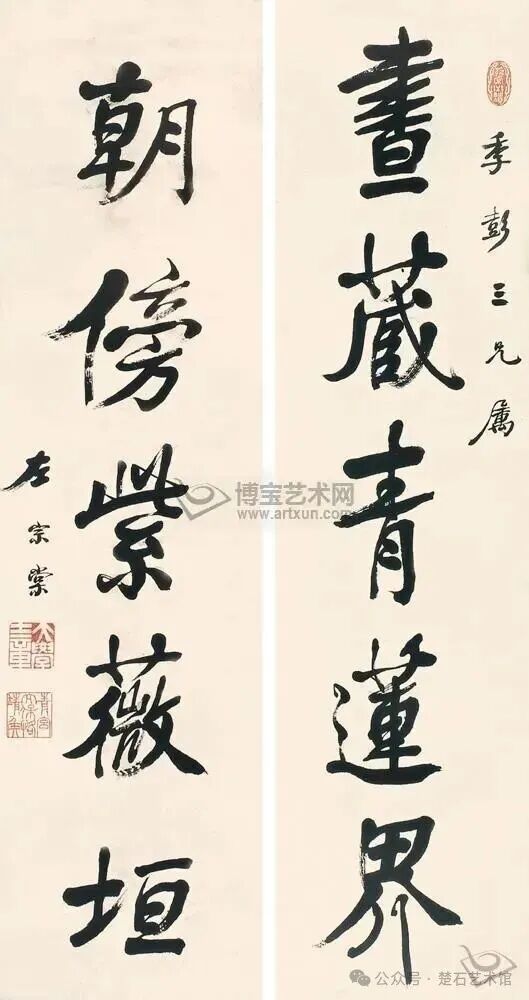 季彭三兄属
晝藏青蓮界
朝傍紫薇垣
左宗棠
博宝艺术网
www.artxun.com
公众号 · 楚石艺术馆